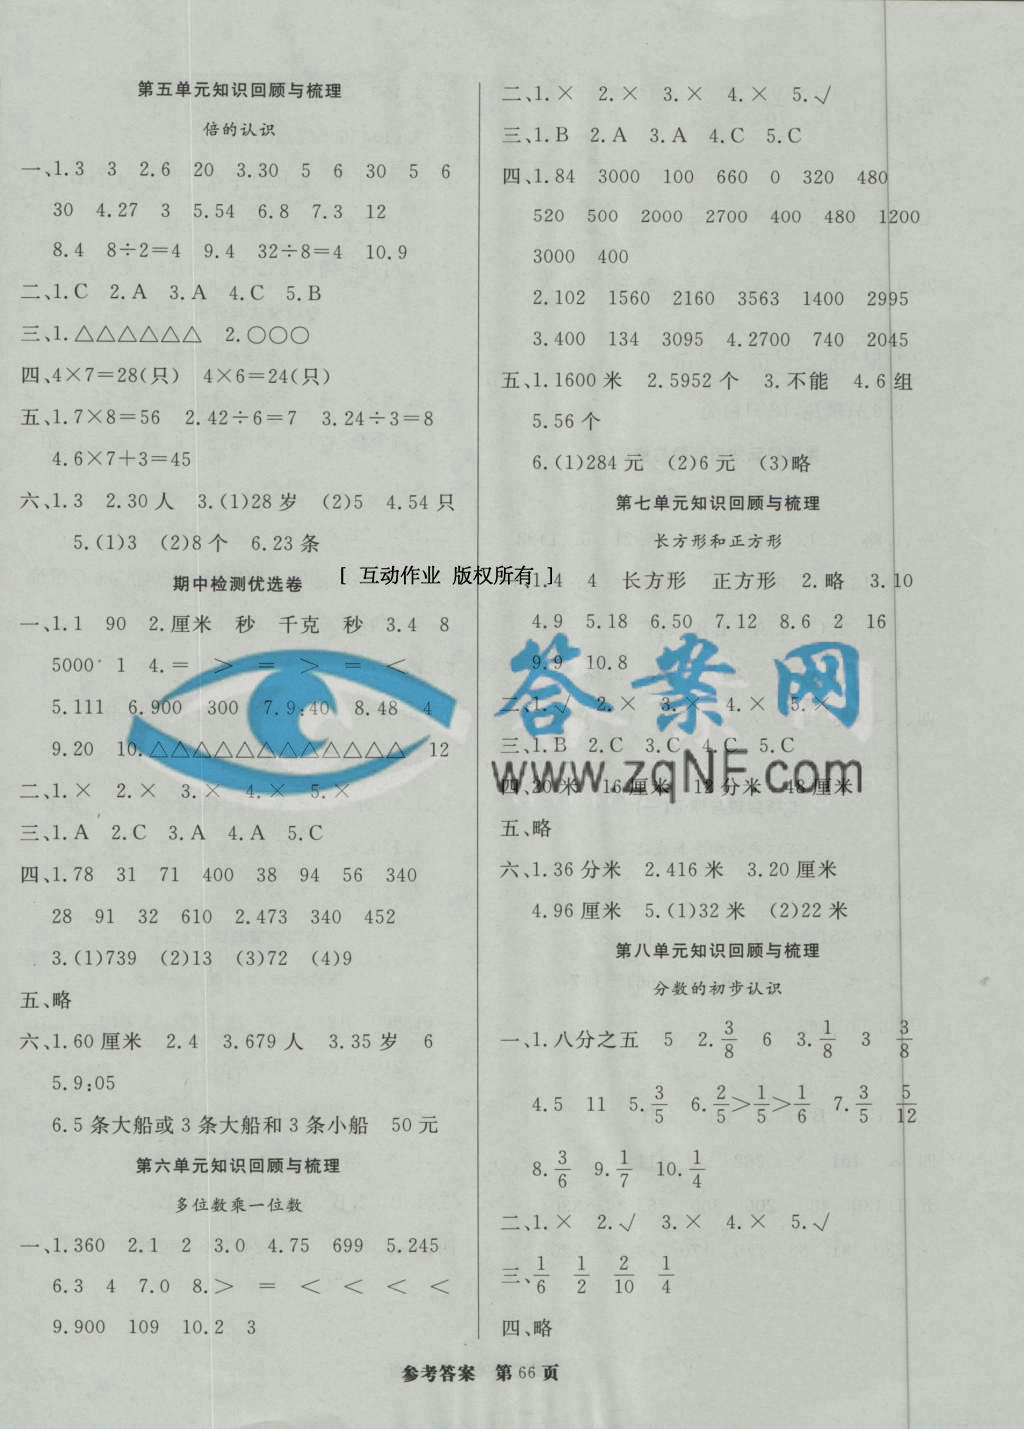 第五单元知识回顾与梳理
倍的认识
一、1.3 3 2.6 20 3.30 5 6 30 5 6
30 4.27 3 5.54 6.8 7.3 12
8.4 8÷2=4 9.4 32÷8=4 10.9
二、1.C 2.A 3.A 4.C 5.B
三、1.△△△△△△ 2.○○○
四、4×7=28(只) 4×6=24(只)
五、1.7×8=56 2.42÷6=7 3.24÷3=8
4.6×7+3=45
六、1.3 2.30人 3.(1)28岁 (2)5 4.54只
5.(1)3 (2)8个 6.23条
期中检测优选卷
一、1.1 90 2.厘米 秒 千克 秒 3.4 8
5000 1 4.= > = > = <
5.111 6.900 300 7.9:40 8.48 4
9.20 10.△△△△△△△△△△△△ 12
二、1.× 2.× 3.× 4.× 5.×
三、1.A 2.C 3.A 4.A 5.C
四、1.78 31 71 400 38 94 56 340
28 91 32 610 2.473 340 452
3.(1)739 (2)13 (3)72 (4)9
五、略
六、1.60厘米 2.4 3.679人 3.35岁 6
5.9:05
6.5条大船或3条大船和3条小船 50元
第六单元知识回顾与梳理
多位数乘一位数
一、1.360 2.1 2 3.0 4.75 699 5.245
6.3 4 7.0 8.> = < < < <
9.900 109 10.2 3
二、1.× 2.× 3.× 4.× 5.√
三、1.B 2.A 3.A 4.C 5.C
四、1.84 3000 100 660 0 320 480
520 500 2000 2700 400 480 1200
3000 400
2.102 1560 2160 3563 1400 2995
3.400 134 3095 4.2700 740 2045
五、1.1600米 2.5952个 3.不能 4.6组
5.56个
6.(1)284元 (2)6元 (3)略
第七单元知识回顾与梳理
长方形和正方形
[ 互动作业 版权所有 ]
一、1.4 4 长方形 正方形 2.略 3.10
4.9 5.18 6.50 7.12 8.6 2 16
9.9 10.8
二、1.√ 2.× 3.× 4.× 5.×
三、1.B 2.C 3.C 4.C 5.C
四、20米 16厘米 12分米 48厘米
五、略
六、1.36分米 2.416米 3.20厘米
4.96厘米 5.(1)32米 (2)22米
第八单元知识回顾与梳理
分数的初步认识
一、1.八分之五 5 2.3/8 6 3.1/8 3 3/8
4.5 11 5.3/5 6.2/5>1/5>1/6 7.3/5 5/12
8.3/6 9.1/7 10.1/4
二、1.× 2.√ 3.× 4.× 5.√
三、1/6 1/2 2/10 1/4
四、略
答案网
www.zqNF.com
参考答案 第66页